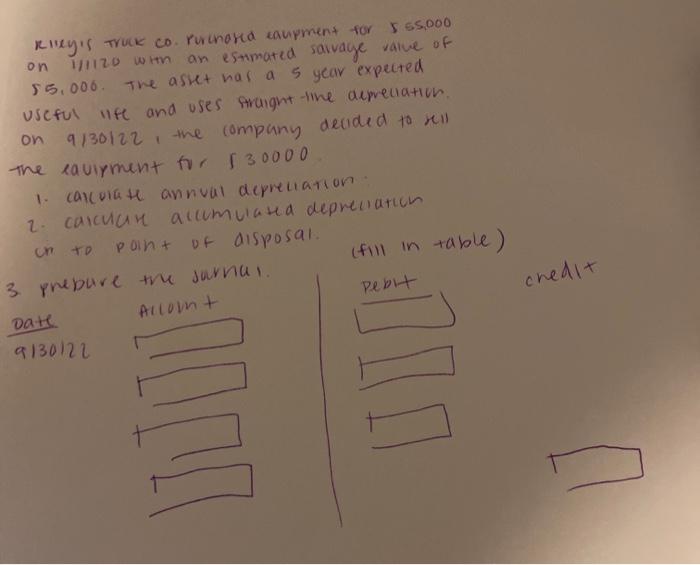 Riley's Truck co. Purchased equipment for $55,000
on 1/1/20 with an estimated salvage value of
$5,000. The asset has a 5 year expected
useful life and uses straight-line depreciation.
on 9/30/22, the company decided to sell
The equipment for $30000
1. calculate annual depreciation.
2. calculate accumulated depreciation
up to point of disposal.
3 prepare the journal. (fill in table)
Date Account Debit credit
9/30/22